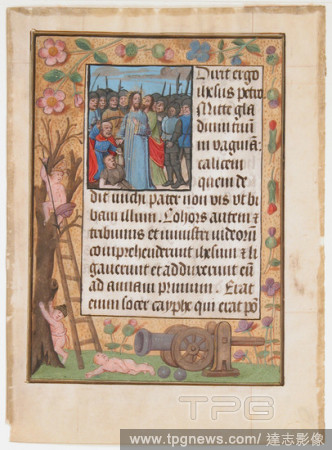 Dixit ergo
ihesus petro
Mitte gla
dium tuũ
in vaginã
calicem
quem de
dit michi pater non vis vt bi
bam illum. Cohors autem ⁊
tribunus et ministri iudeorũ
comprehenderunt ihesum ⁊ li
gauerunt et adduxerunt eũ
ad annam primum. Erat
enim socer cayphe qui erat põ
TPG
www.tpgnews.com/ 達志影像